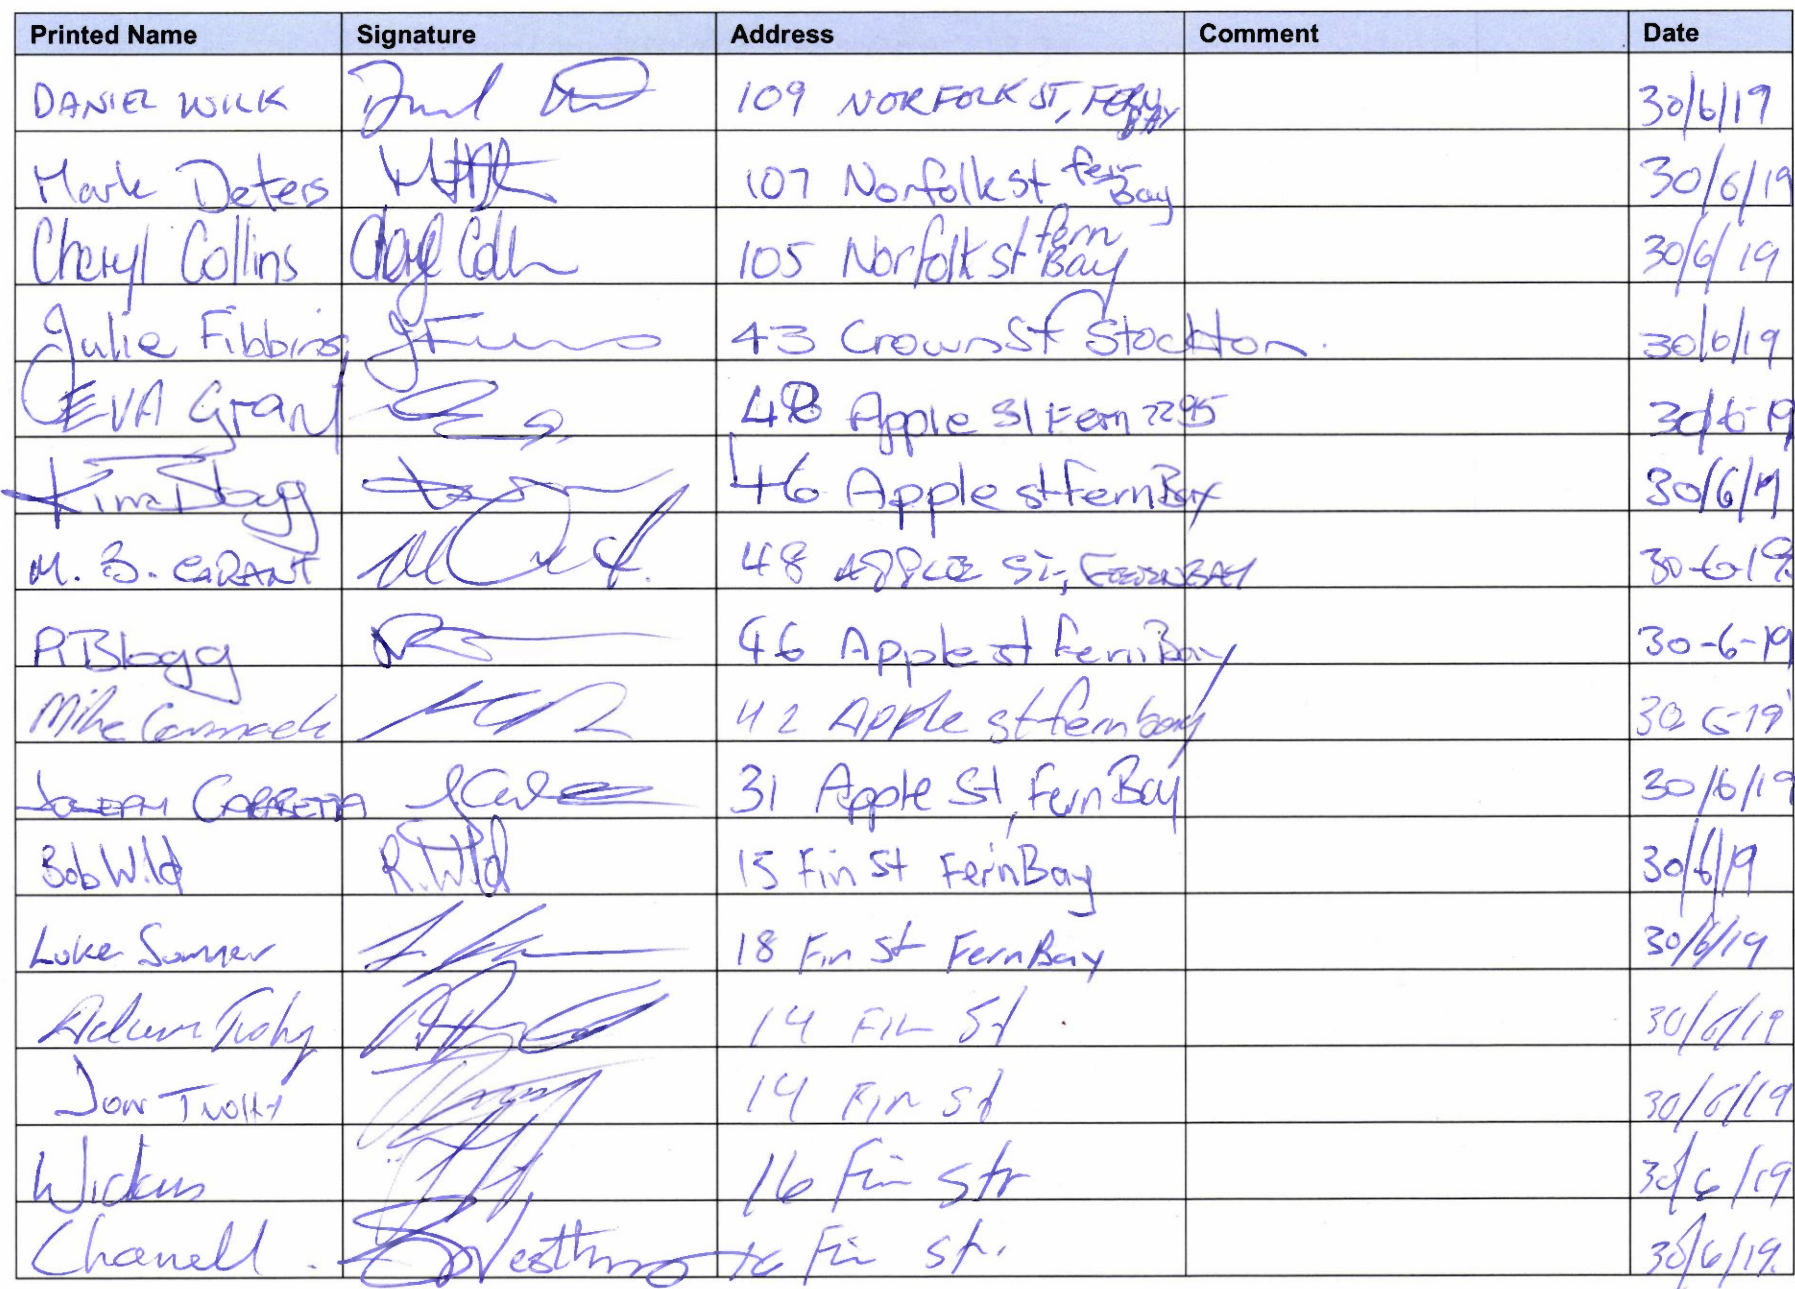 Printed Name Signature Address Comment Date
DANIEL WILK 109 NORFOLK ST, FERN BAY 30/6/19
Mark Deters 107 Norfolk st fern Bay 30/6/19
Cheryl Collins 105 Norfolk st fern Bay 30/6/19
Julie Fibbins 43 Crown St Stockton. 30/6/19
EVA Grant 48 Apple St Fern 2295 30/6-19
Kim Blogg 46 Apple st Fern Bay 30/6/19
M. B. GRANT 48 APPLE ST, FERN BAY 30-6-19
R Blogg 46 Apple st Fern Bay 30-6-19
Mike 42 Apple st fern bay 30 6-19
JOSEPH 31 Apple St, Fern Bay 30/6/19
Bob Wild R. Wild 15 Fin St Fern Bay 30/6/19
Luke 18 Fin St Fern Bay 30/6/19
Adam 14 Fin St 30/6/19
14 Fin St 30/6/19
16 Fin Str 30/6/19
Chanell. Fin str. 30/6/19.